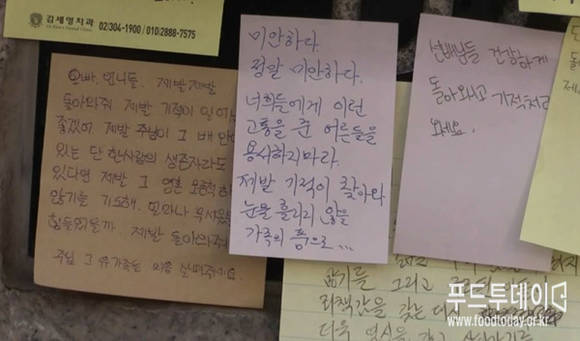 김세영치과
02)304-1900 / 010)2888-7575
오빠, 언니들. 제발제발
돌아와줘 제발 기적이 일어났
좋겠어. 제발 주님이 그 배 안에
있는 단 한사람의 생존자라도
있다면 제발 그
않기를 기도해. 얼마나 무서웠을
힘들었을까. 제발 돌아와줘
주님 그 유가족도 마음 살펴주시요.
미안하다.
정말 미안하다.
너희들에게 이런
고통을 준 어른들을
용서하지마라.
제발 기적이 찾아와
눈물 흘리지 않을
가족의 품으로...
선배님들 건강하게
돌아오시고 기적처럼
오세요.
돌
제
잃기를 그리고
죄책값을 갖는 대신
더욱 열심을
푸드투데이
www.foodtoday.or.kr